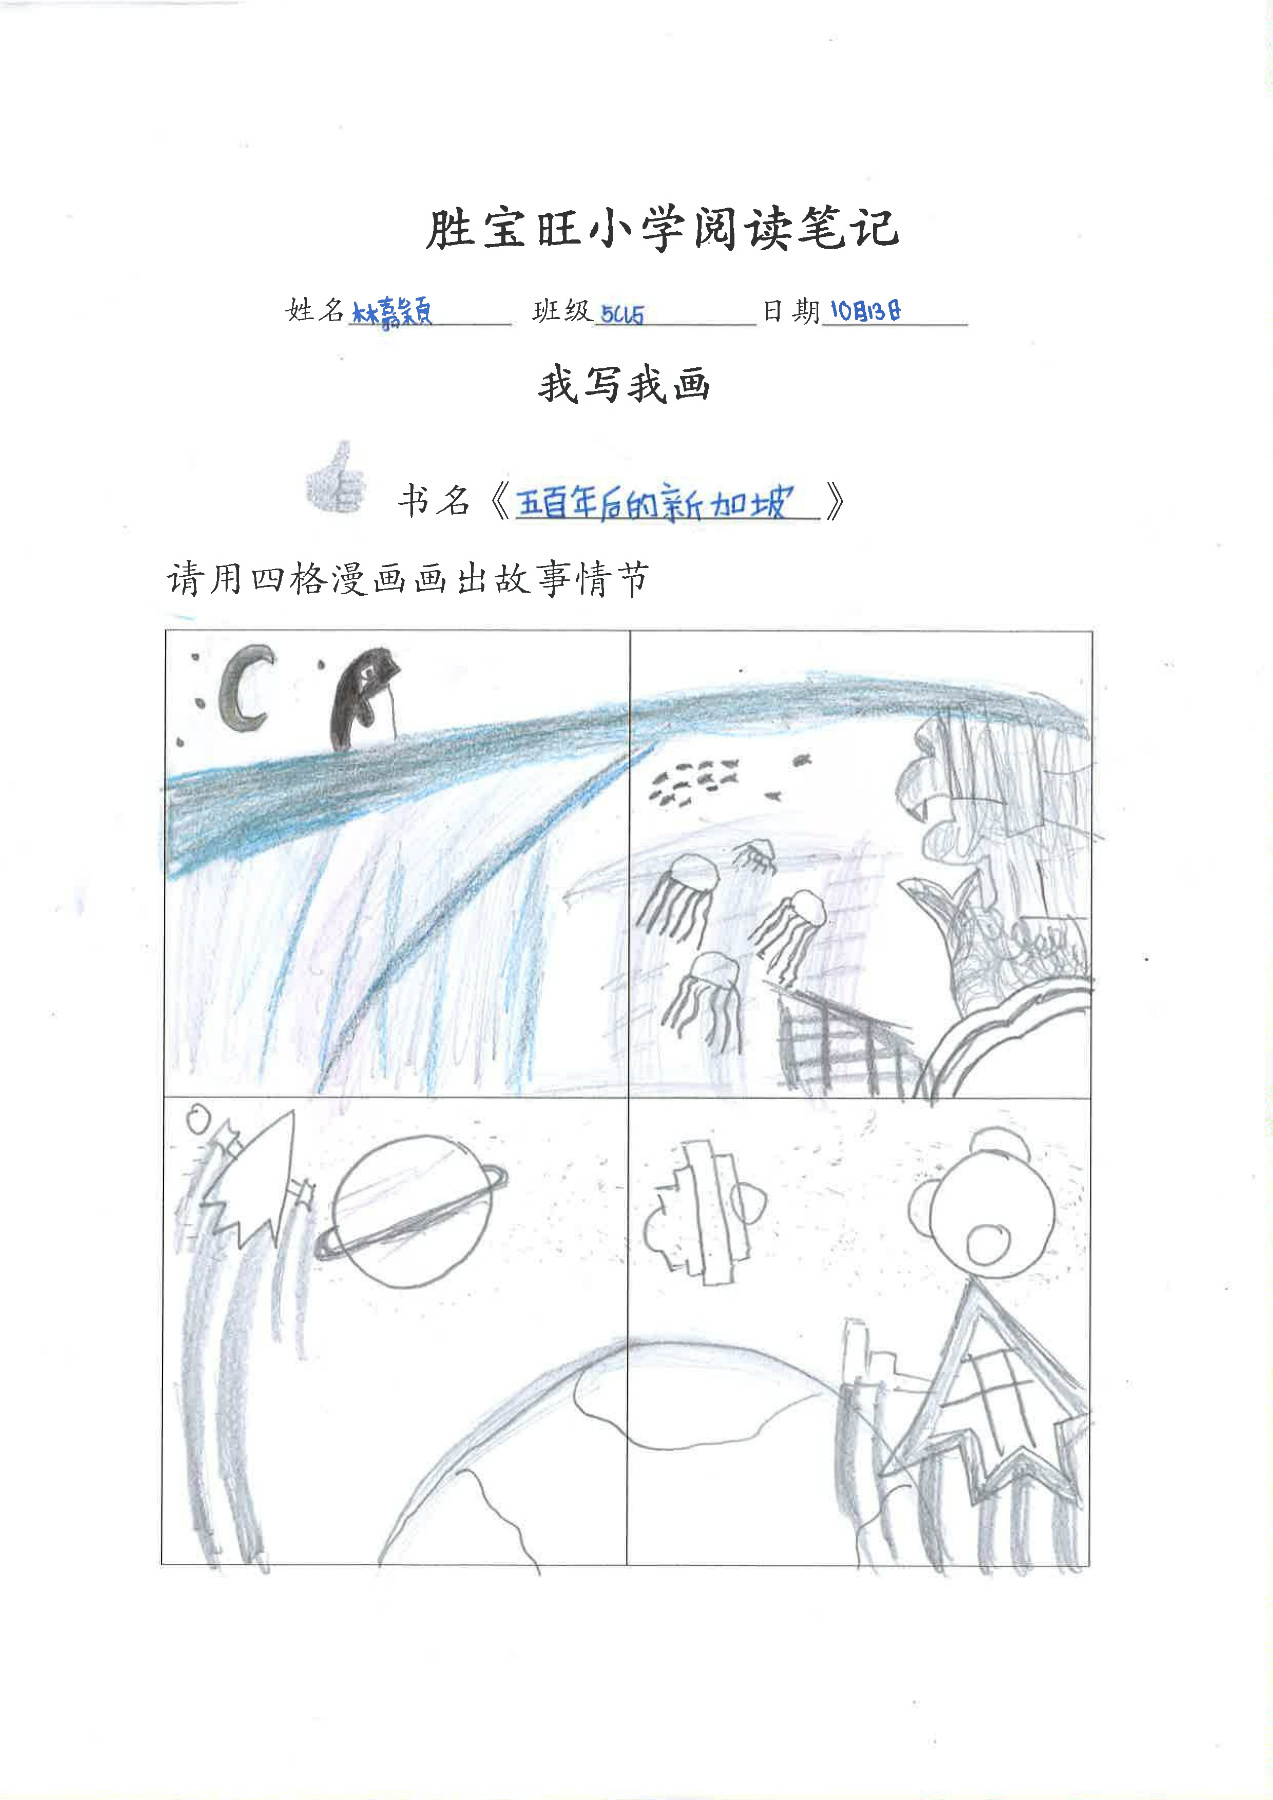 胜宝旺小学阅读笔记
姓名 林嘉颖 班级 5CL5 日期 10月13日
我写我画
书名《五百年后的新加坡》
请用四格漫画画出故事情节